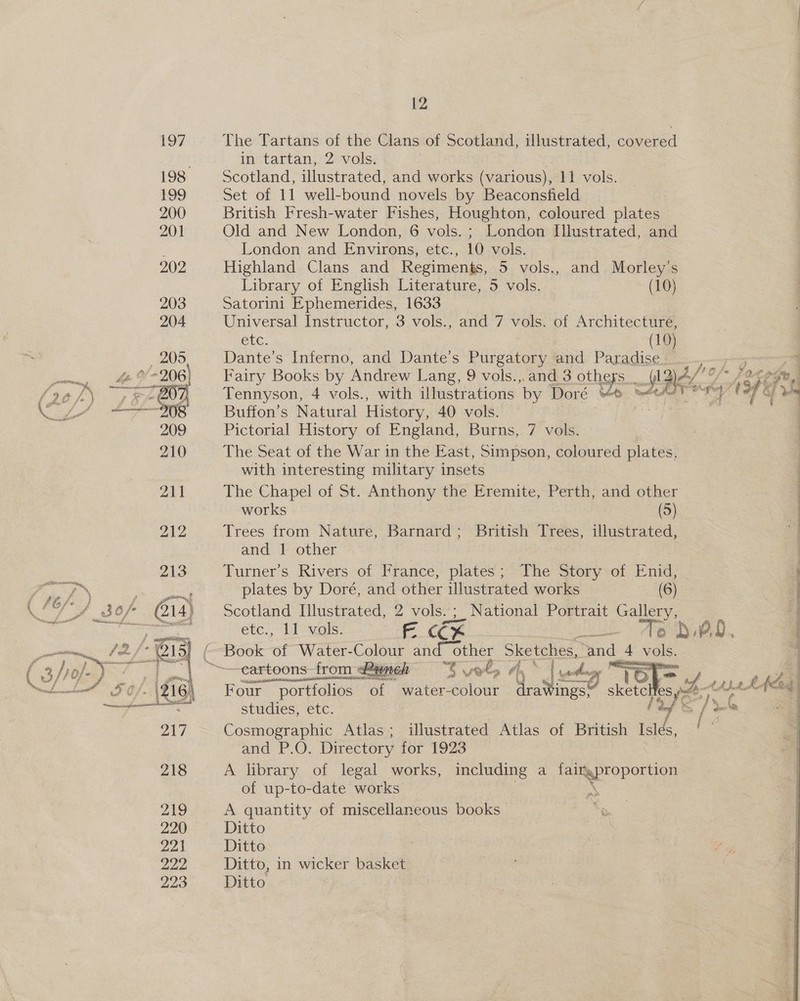 12
197 The Tartans of the Clans of Scotland, illustrated, covered
in tartan, 2 vols.
198 Scotland, illustrated, and works (various), 11 vols.
199 Set of 11 well-bound novels by Beaconsfield
200 British Fresh-water Fishes, Houghton, coloured plates
201 Old and New London, 6 vols. ; London Illustrated, and
London and Environs, etc., 10 vols.
202 Highland Clans and Regiments, 5 vols., and Morley's
Library of English Literature, 5 vols. (10)
203 Satorini Ephemerides, 1633
204 Universal Instructor, 3 vols., and 7 vols. of Architecture,
etc. (10)
205 Dante's Inferno, and Dante's Purgatory and Paradise
206 Fairy Books by Andrew Lang, 9 vols., and 3 others (12)
207 Tennyson, 4 vols., with illustrations by Doré
208 Buffon's Natural History, 40 vols.
209 Pictorial History of England, Burns, 7 vols.
210 The Seat of the War in the East, Simpson, coloured plates,
with interesting military insets
211 The Chapel of St. Anthony the Eremite, Perth, and other
works (5)
212 Trees from Nature, Barnard ; British Trees, illustrated,
and 1 other
213 Turner's Rivers of France, plates ; The Story of Enid,
plates by Doré, and other illustrated works (6)
30/- 214 Scotland Illustrated, 2 vols. ; National Portrait Gallery,
etc., 11 vols. To
12/- 215 Book of Water-Colour and other Sketches, and 4 vols.
cartoons from Punch
216 Four portfolios of water-colour drawings, sketches,
studies, etc.
217 Cosmographic Atlas ; illustrated Atlas of British Isles,
and P.O. Directory for 1923
218 A library of legal works, including a fair proportion
of up-to-date works
219 A quantity of miscellaneous books
220 Ditto
221 Ditto
222 Ditto, in wicker basket
223 Ditto